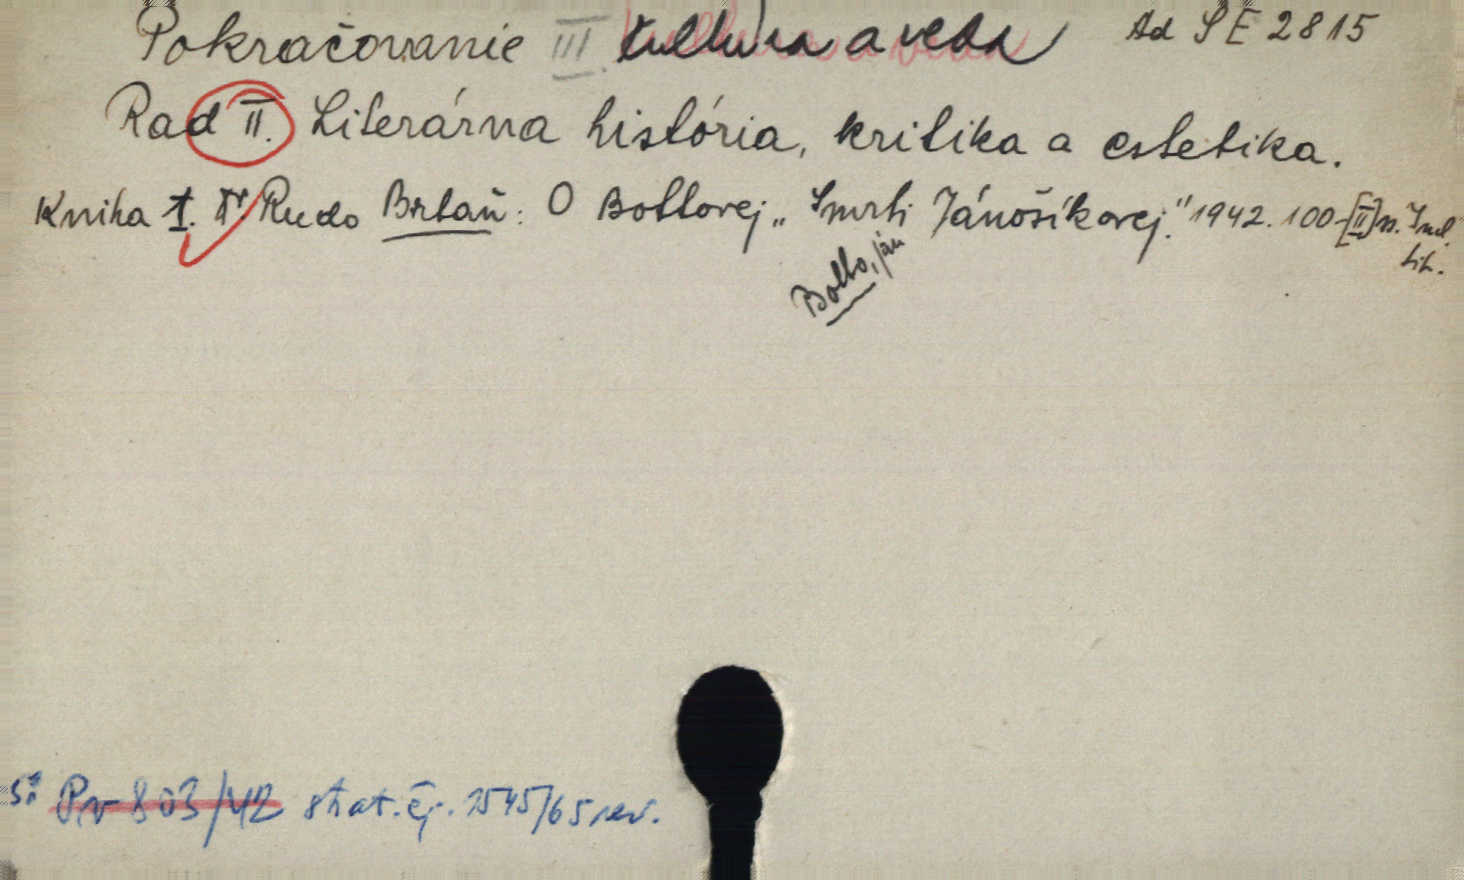 Pokračovanie III. Kultúra a veda Ad SE 2815
Rad II. Literárna história, kritika a estetika.
Kniha 1. Rudo Brtáň: O Bottovej „Smrti Jánošíkovej." 1942. 100-[II] s.
lit.
Botto, Ján
Pr 803/42 strat. čj. 1545/65 rev.